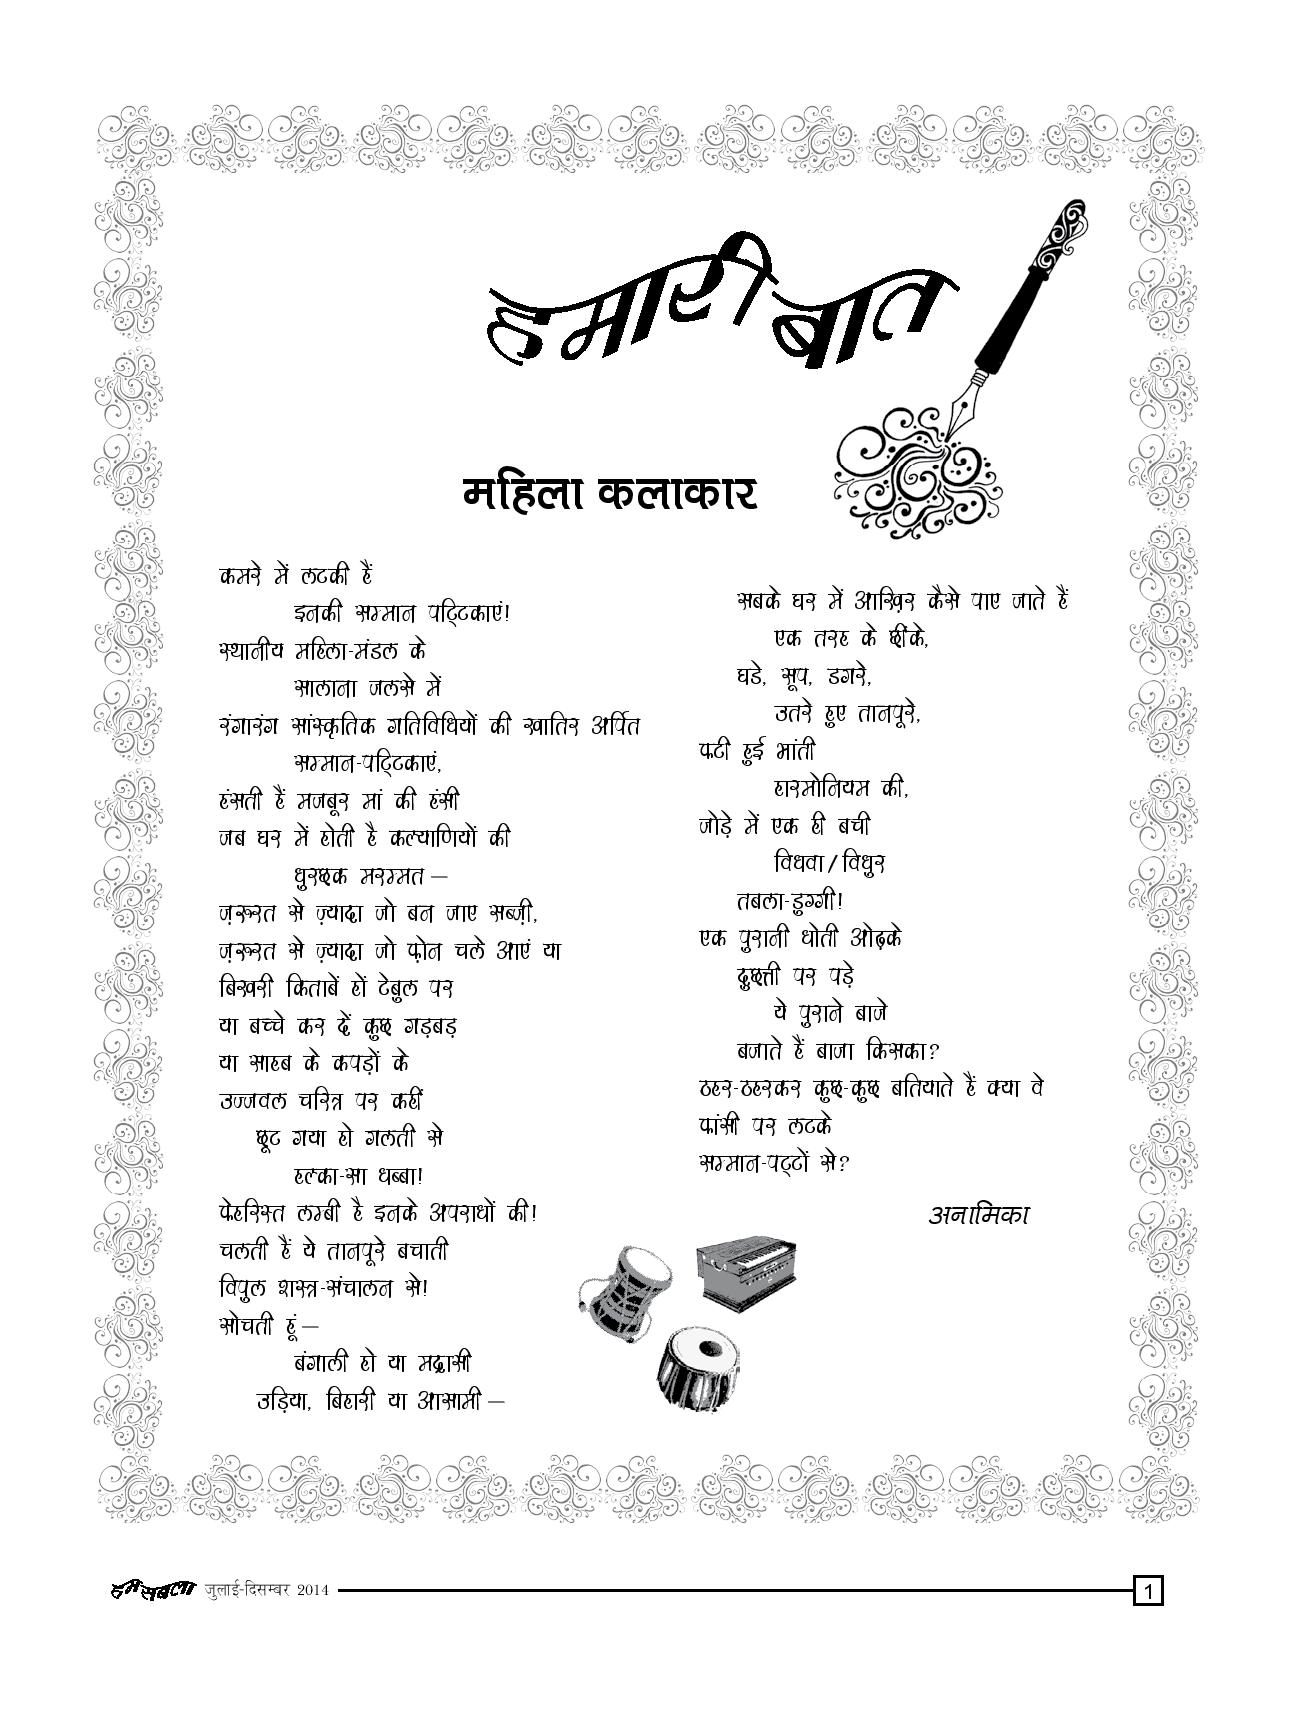 हमारी बात
महिला कलाकार
कमरे में लटकी हैं
इनकी सम्मान पट्टिकाएं!
स्थानीय महिला-मंडल के
सालाना जलसे में
रंगारंग सांस्कृतिक गतिविधियों की खातिर अर्पित
सम्मान-पट्टिकाएं,
हंसती हैं मजबूर मां की हंसी
जब घर में होती है कल्याणियों की
धुरछक मरम्मत –
ज़रूरत से ज़्यादा जो बन जाए सब्ज़ी,
ज़रूरत से ज़्यादा जो फ़ोन चले आएं या
बिखरी किताबें हों टेबुल पर
या बच्चे कर दें कुछ गड़बड़
या साहब के कपड़ों के
उज्जवल चरित्र पर कहीं
छूट गया हो गलती से
हल्का-सा धब्बा!
फेहरिस्त लम्बी है इनके अपराधों की!
चलती हैं ये तानपूरे बचाती
विपुल शस्त्र-संचालन से!
सोचती हूं –
बंगाली हो या मद्रासी
उड़िया, बिहारी या आसामी –
सबके घर में आख़िर कैसे पाए जाते हैं
एक तरह के छींके,
घडे, सूप, डगरे,
उतरे हुए तानपूरे,
फटी हुई भांती
हारमोनियम की,
जोड़े में एक ही बची
विधवा/विधुर
तबला-डुग्गी!
एक पुरानी धोती ओढ़के
दुछत्ती पर पड़े
ये पुराने बाजे
बजाते हैं बाजा किसका?
ठहर-ठहरकर कुछ-कुछ बतियाते हैं क्या वे
फांसी पर लटके
सम्मान-पट्टों से?
अनामिका
हम सबला जुलाई-दिसम्बर 2014
1